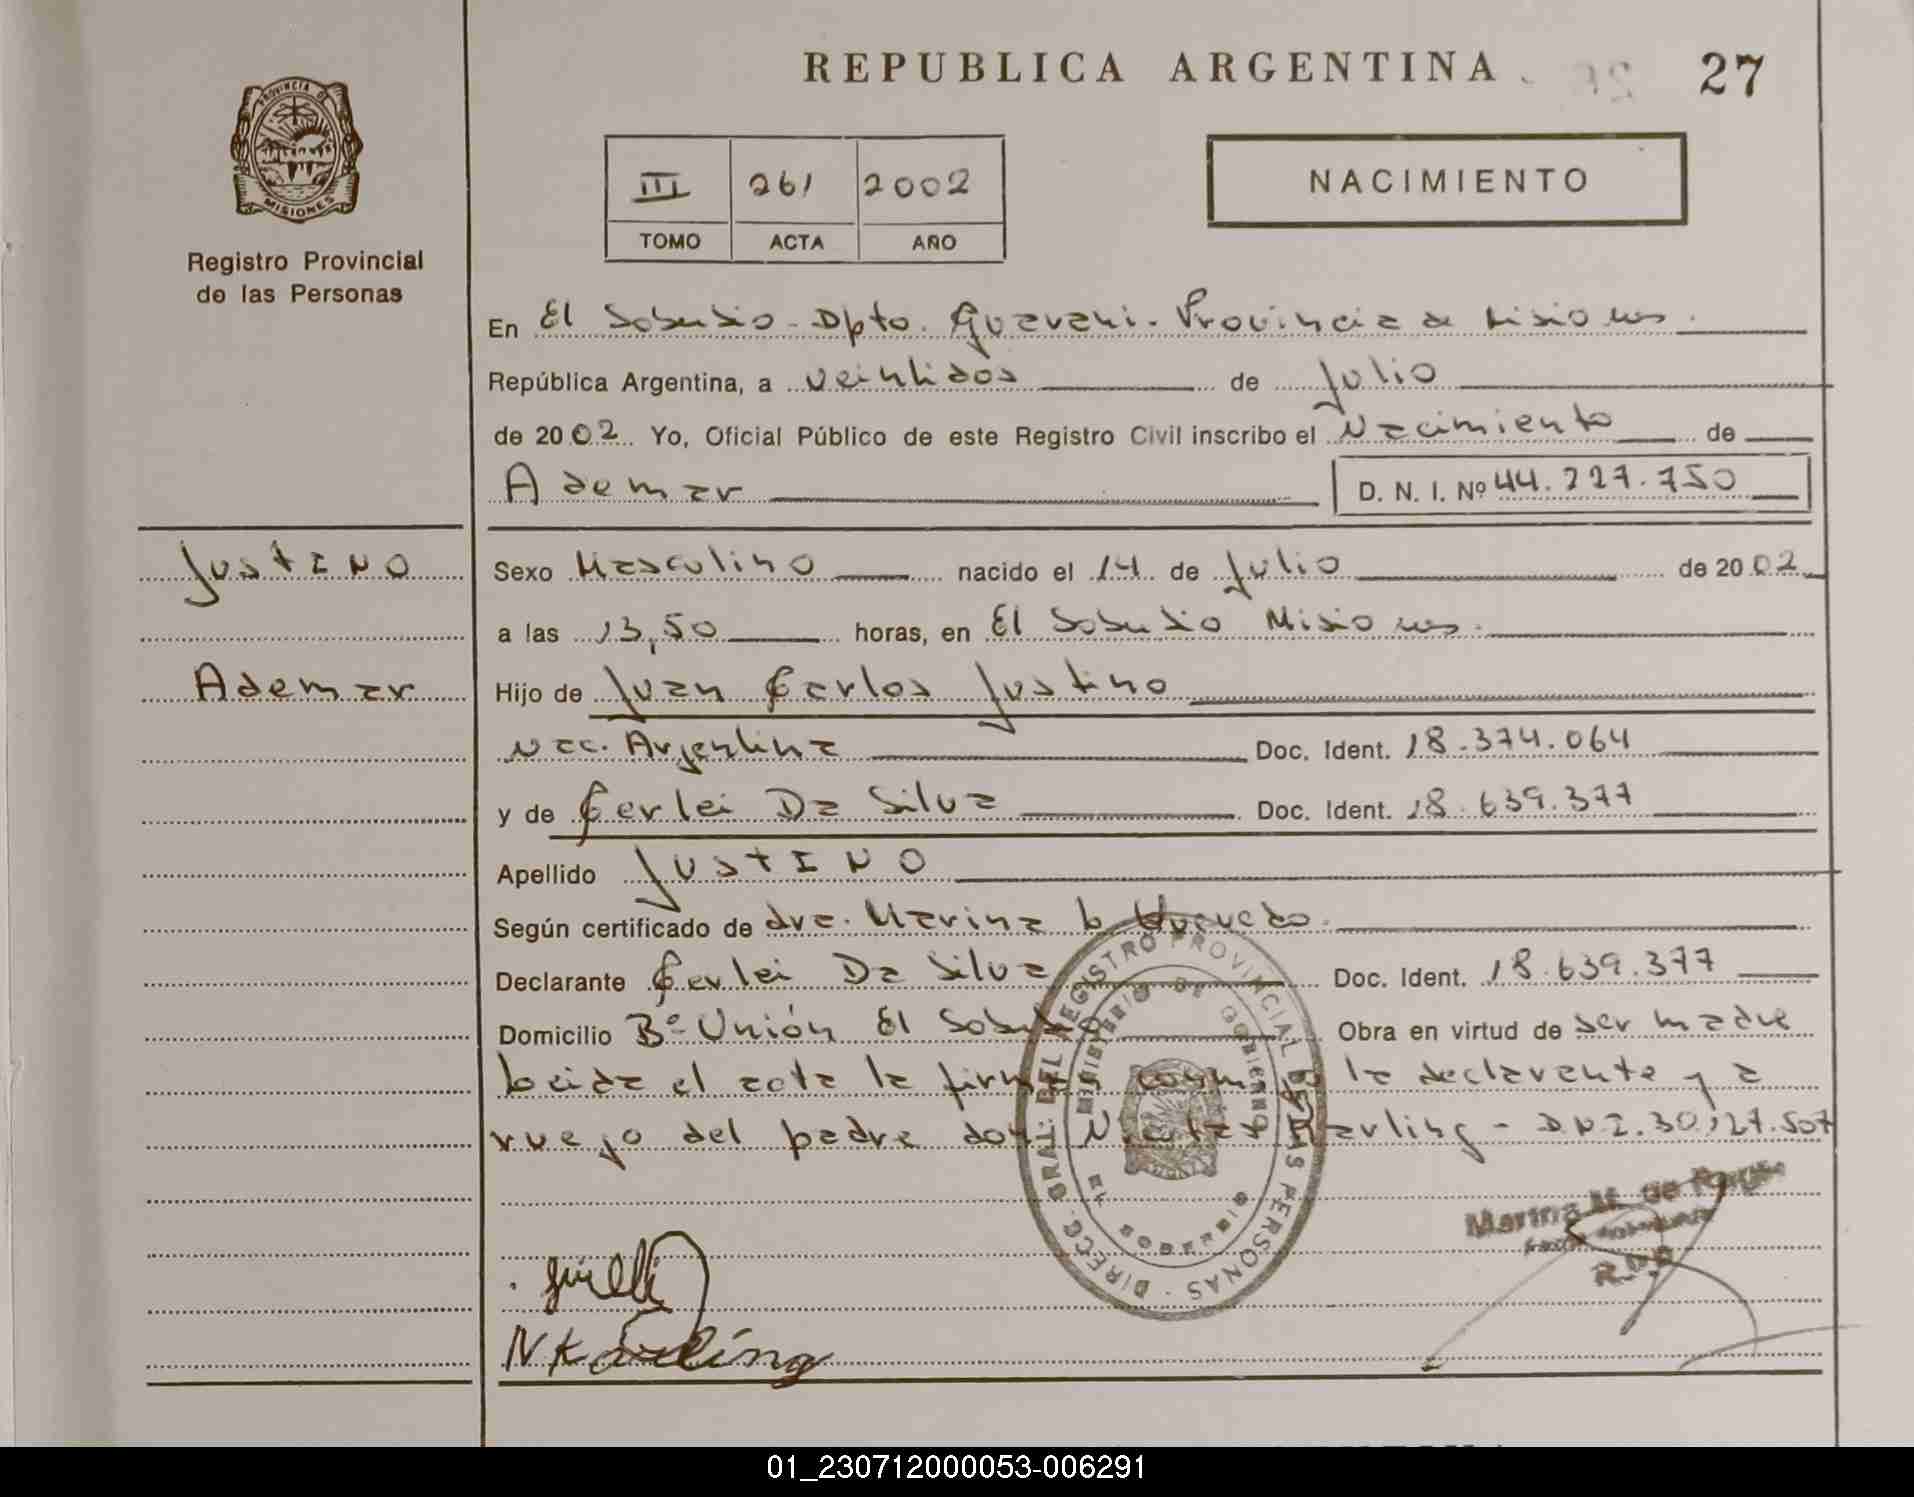 REPUBLICA ARGENTINA
27
PROVINCIA DE
MISIONES
Registro Provincial
de las Personas
III 261 2002
TOMO ACTA AÑO
NACIMIENTO
En El Soberbio - Dpto. Guarani - Provincia de Misiones.
República Argentina, a veintidos de Julio
de 2002 Yo, Oficial Público de este Registro Civil inscribo el Nacimiento de
Ademar
D. N. I. Nº 44.227.750
JUSTINO
Ademar
Sexo Masculino nacido el 14 de Julio de 2002
a las 13,50 horas, en El Soberbio Misiones.
Hijo de Juan Carlos Justino
Nac. Argentina Doc. Ident. 18.374.064
y de Gerlei Da Silva Doc. Ident. 18.639.377
Apellido JUSTINO
Según certificado de dra. Marina
Declarante Gerlei Da Silva Doc. Ident. 18.639.377
Domicilio Bº Unión El Soberbio Obra en virtud de ser madre
Leida el acta la firma conmigo la declarante y a
ruego del padre don Karling - DNI. 30.127.507
DIRECC. GRAL. DEL REGISTRO PROVINCIAL DE LAS PERSONAS
MINISTERIO DE GOBIERNO
EL SOBERBIO
Marina M. de
R.P.P
N Karling
01_230712000053-006291